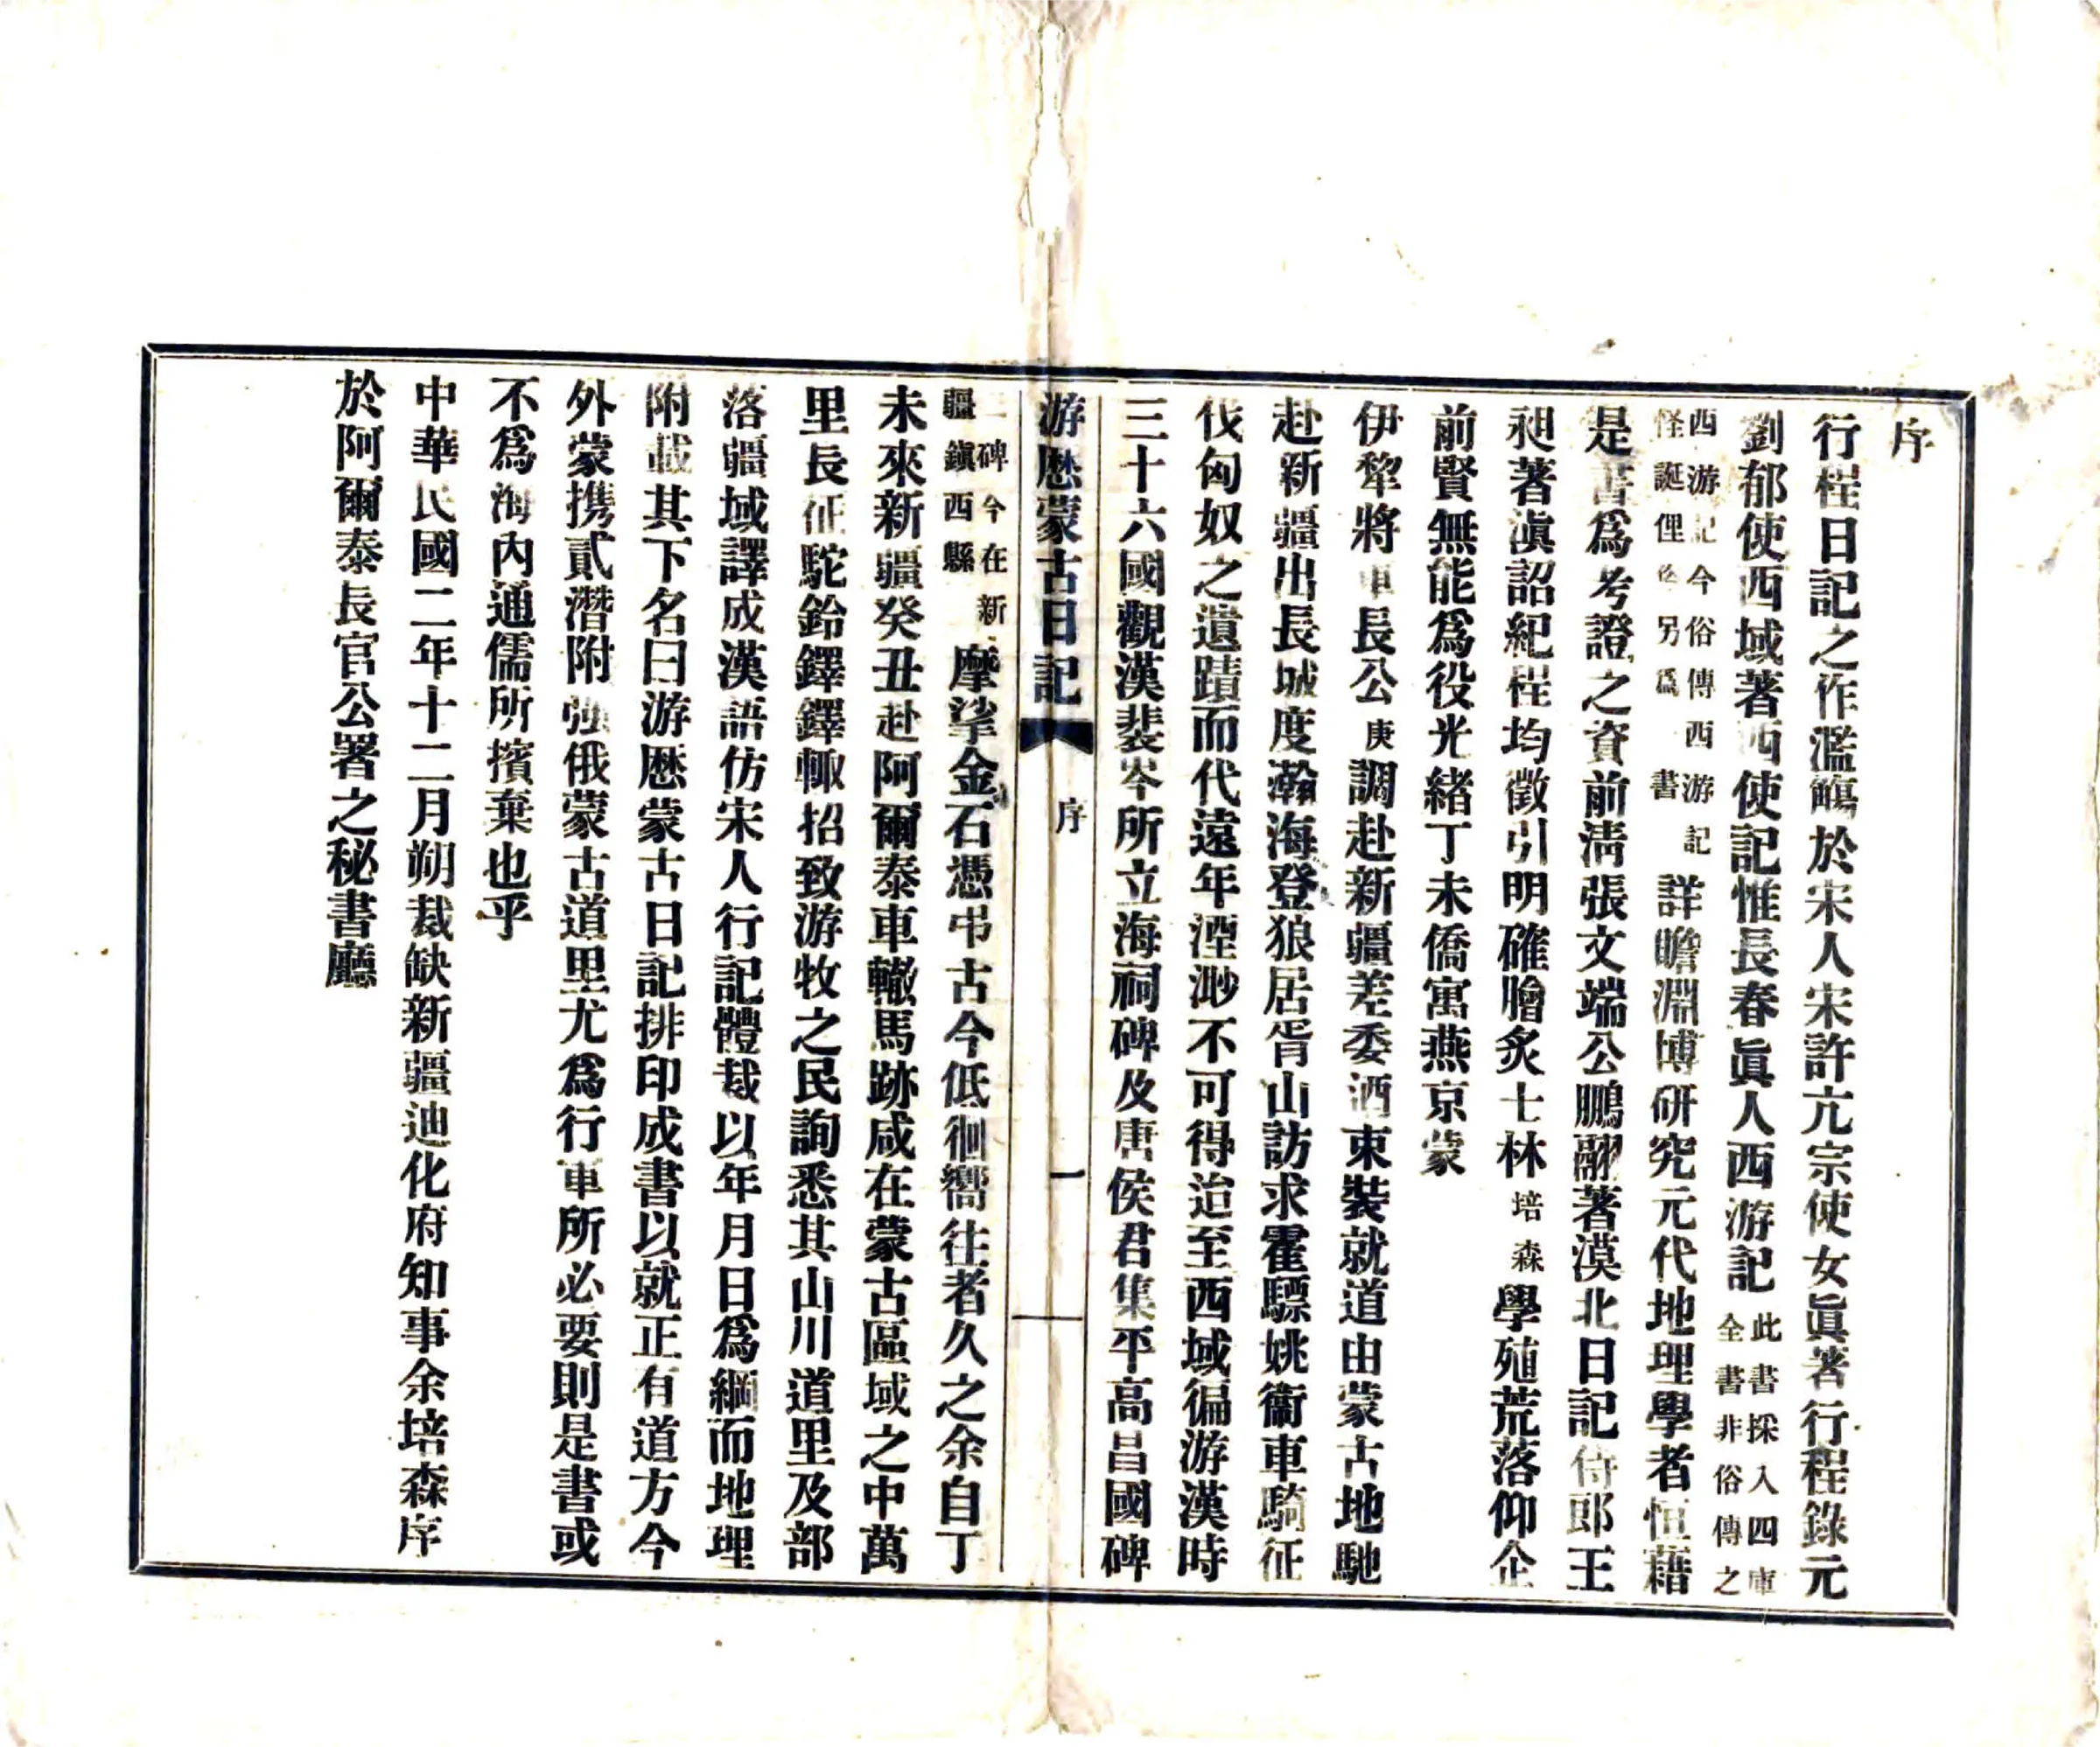 序
行程日記之作濫觴於宋人宋許亢宗使女眞著行程錄元
劉郁使西域著西使記惟長春眞人西游記此書採入四庫全書非俗傳之
西游記今俗傳西游記怪誕俚俗另爲書詳瞻淵博研究元代地理學者恒藉
是書爲考證之資前清張文端公鵬翮著漠北日記侍郎王
昶著滇詔紀程均徵引明確膾炙士林培森學殖荒落仰企
前賢無能爲役光緒丁未僑寓燕京蒙
伊犂將軍長公庚調赴新疆差委洒束裝就道由蒙古地馳
赴新疆出長城度瀚海登狼居胥山訪求霍驃姚衞車騎征
伐匈奴之遺蹟而代遠年湮渺不可得迨至西域徧游漢時
三十六國觀漢裴岑所立海祠碑及唐侯君集平高昌國碑
游歷蒙古日記 序 一
二碑今在新疆鎮西縣摩挲金石憑弔古今低徊嚮往者久之余自丁
未來新疆癸丑赴阿爾泰車轍馬跡咸在蒙古區域之中萬
里長征駝鈴鐸鐸輙招致游牧之民詢悉其山川道里及部
落疆域譯成漢語仿宋人行記體裁以年月日爲綱而地理
附載其下名曰游歷蒙古日記排印成書以就正有道方今
外蒙攜貳潛附强俄蒙古道里尤爲行軍所必要則是書或
不爲海內通儒所擯棄也乎
中華民國二年十二月朔裁缺新疆迪化府知事余培森序
於阿爾泰長官公署之秘書廳